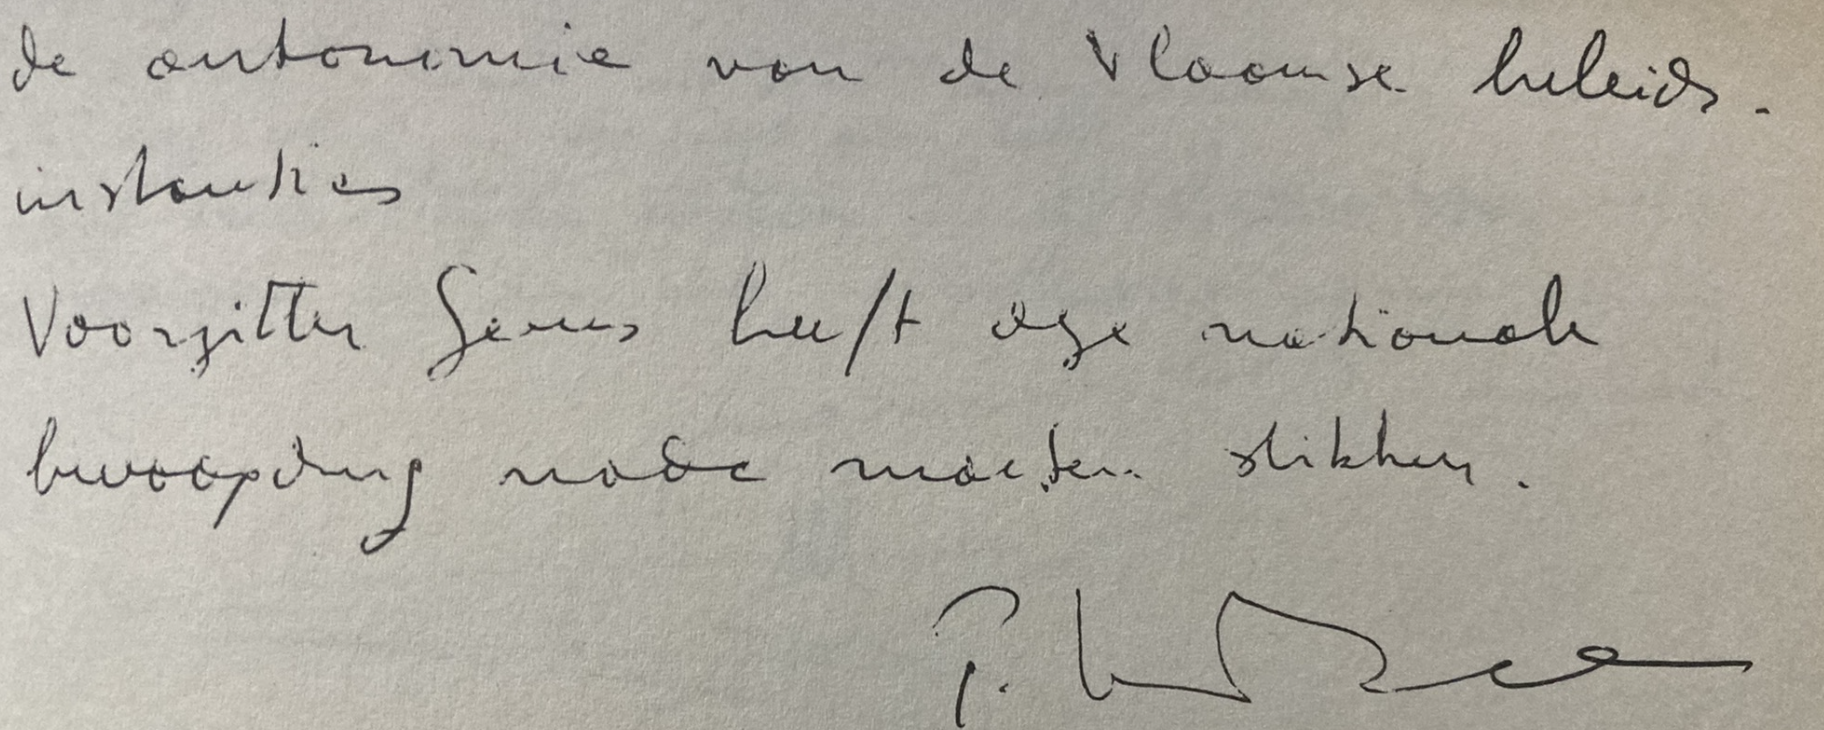 de autonomie van de Vlaamse beleids-
instanties
Voorzitter Geens heeft deze nationale
bevoogding node moeten slikken.
P.